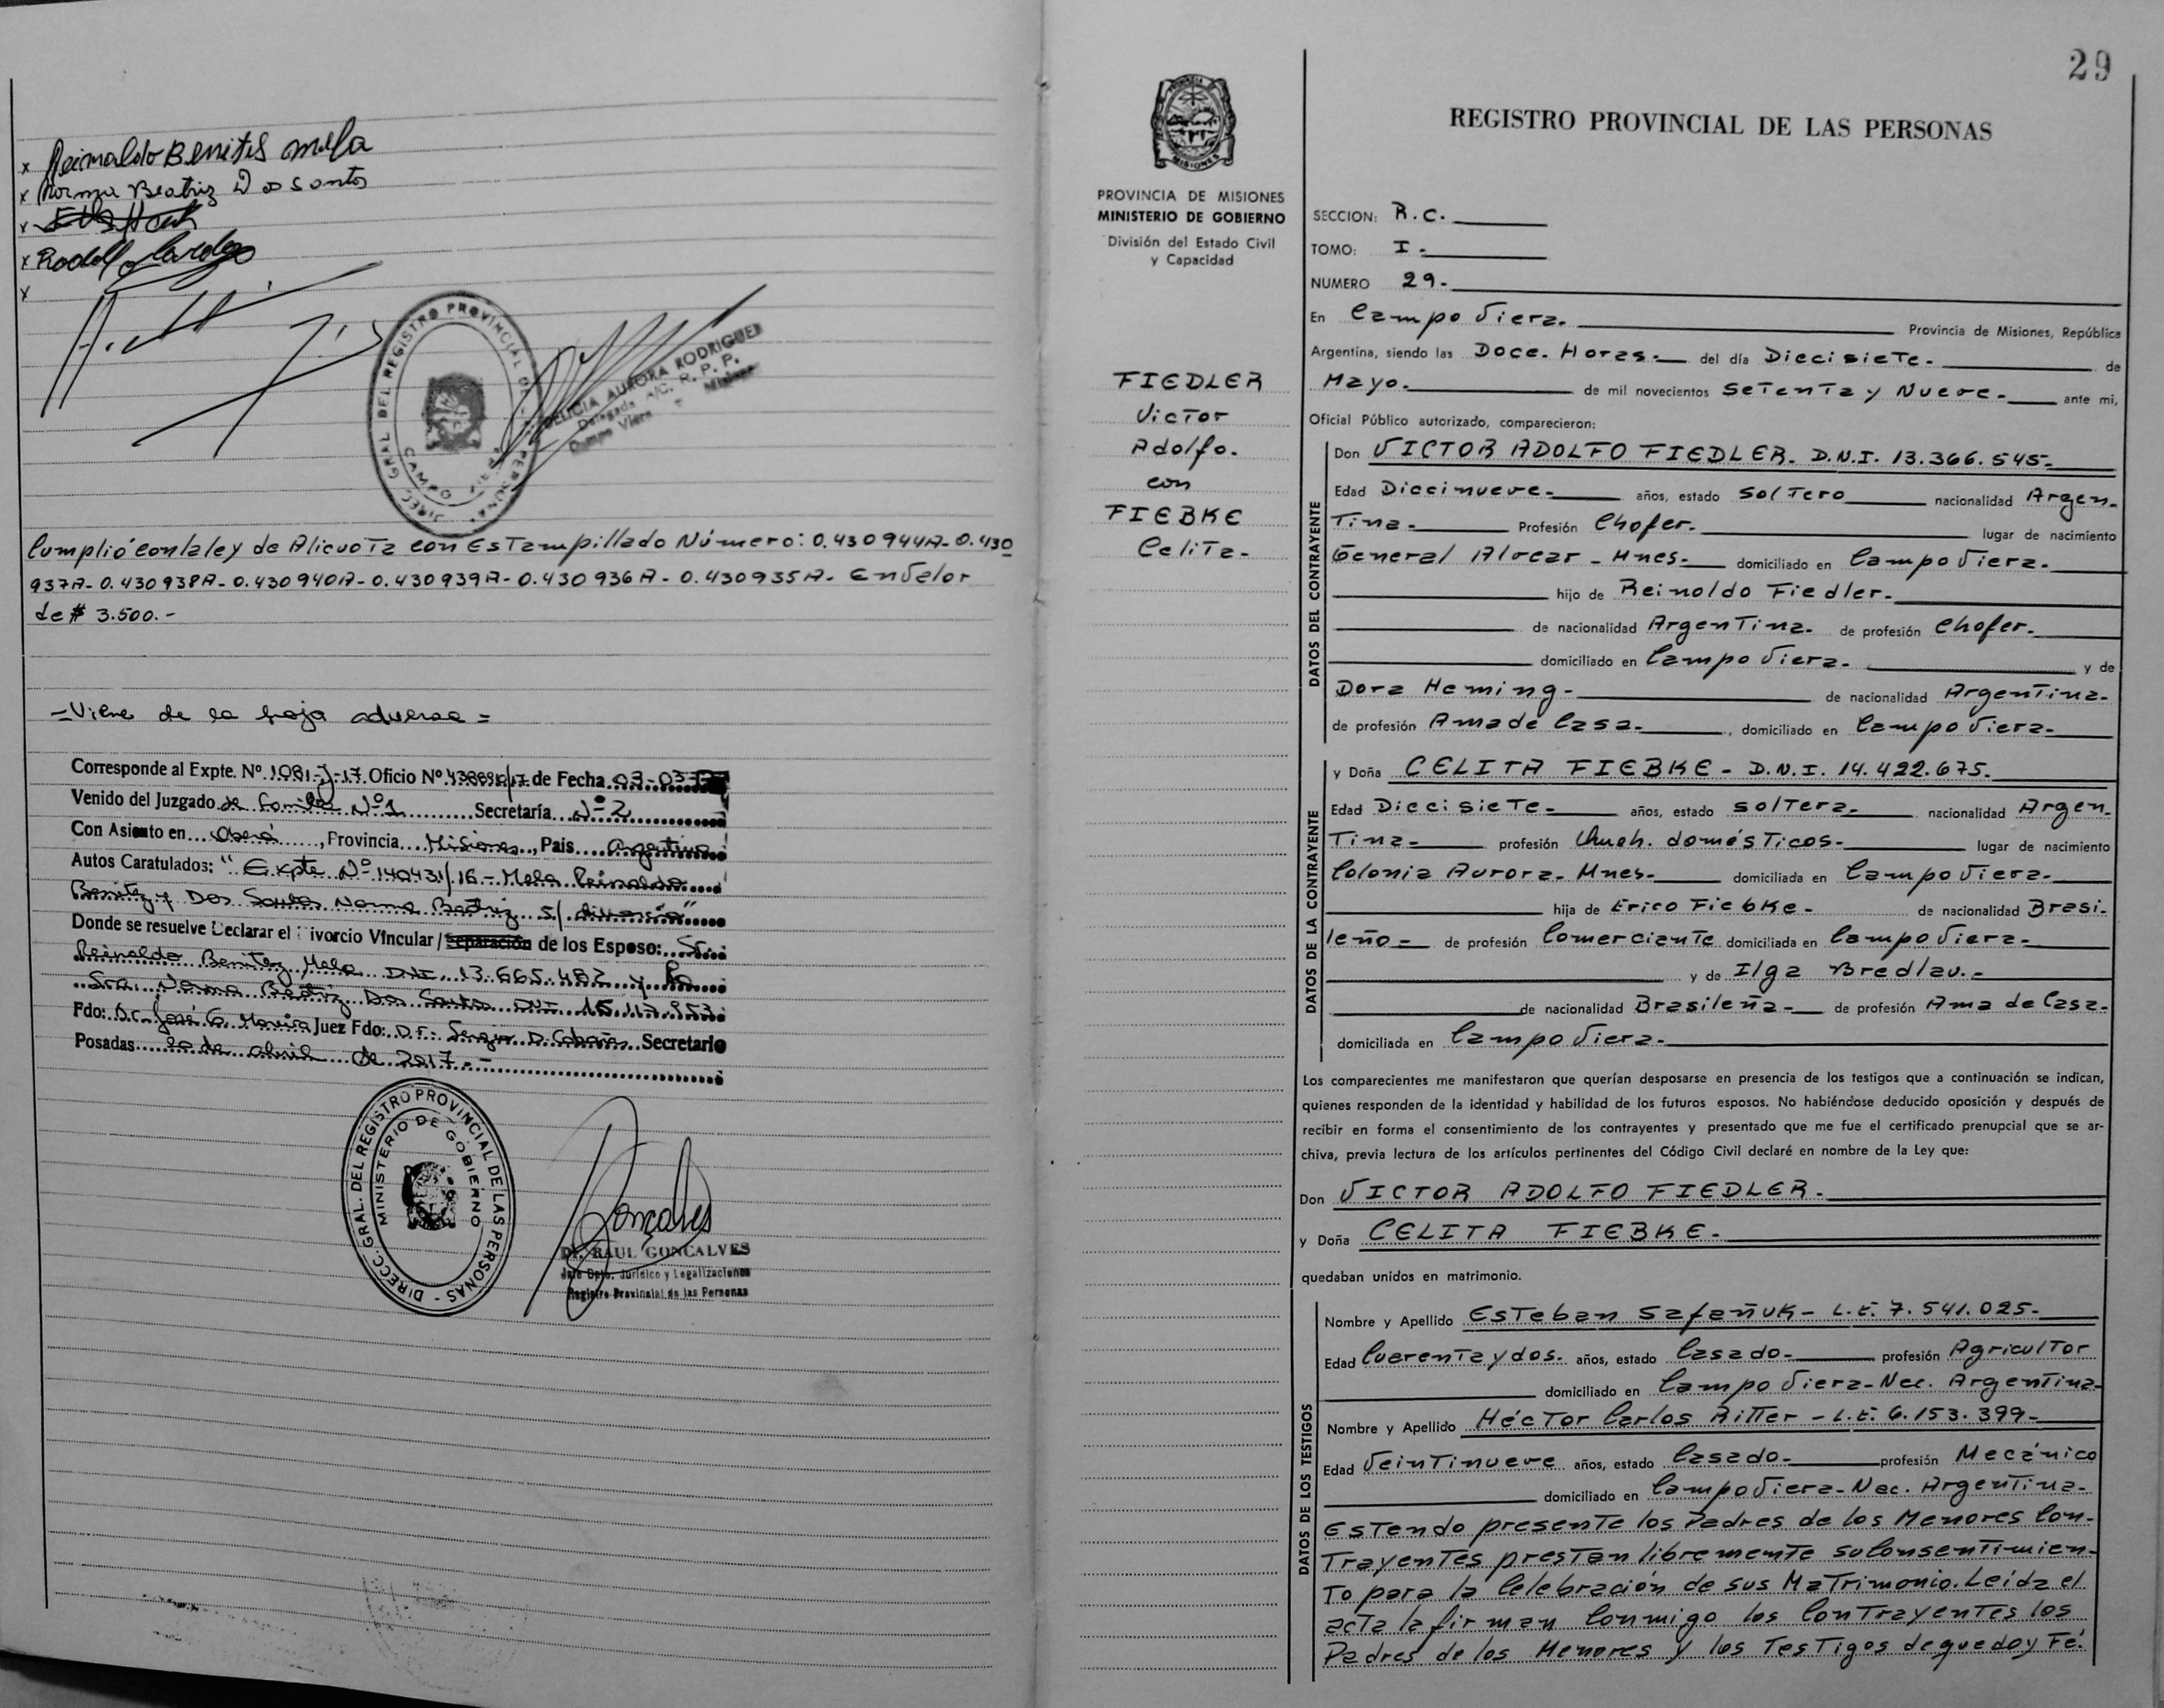 x Reinaldo Benites mela
x Norma Beatriz Dos Santos
x
x Rodolfo
x
DIREC. GRAL. DEL REGISTRO PROVINCIAL DE PERSONAS
CAMPO VIERA
DELICIA AURORA RODRIGUEZ
Delegada A/C. R. P. P.
Campo Viera - Misiones
Cumplió con la ley de Alicuota con Estampillado Número: 0.430944A-0.430
937A-0.430938A-0.430940A-0.430939A-0.430936A-0.430935A- En Valor
de $ 3.500.-
=Viene de la hoja adversa=
Corresponde al Expte. Nº 1081-J-17 Oficio Nº /17 de Fecha 03-03-17
Venido del Juzgado de Familia Nº1 Secretaría Nº2
Con Asiento en Oberá, Provincia Misiones, Pais Argentina
Autos Caratulados: "Expte Nº 140431/16 - Mela Reinaldo
Benitez y Dos Santos Norma Beatriz s/ divorcio"
Donde se resuelve Declarar el Divorcio Vincular / Separación de los Esposo: Sr.
Reinaldo Benitez Mela DNI 13.665.482 y la
Sra. Norma Beatriz Dos Santos DNI 15.117.953
Fdo: Dr. José G. Moreira Juez Fdo: Dr. Sergio D. Secretario
Posadas 20 de abril de 2017.-
DIRECC. GRAL. DEL REGISTRO PROVINCIAL DE LAS PERSONAS -
MINISTERIO DE GOBIERNO
Gonçalves
Dr. RAUL GONCALVES
Jefe Dpto. Jurídico y Legalizaciones
Registro Provincial de las Personas
29
MISIONES
PROVINCIA DE MISIONES
MINISTERIO DE GOBIERNO
División del Estado Civil
y Capacidad
FIEDLER
Victor
Adolfo.
con
FIEBKE
Celita-
REGISTRO PROVINCIAL DE LAS PERSONAS
SECCION: R.C.
TOMO: I-
NUMERO 29-
En Campo Viera- Provincia de Misiones, República
Argentina, siendo las Doce-Horas- del día Diecisiete- de
Mayo- de mil novecientos Setenta y Nueve- ante mi,
Oficial Público autorizado, comparecieron:
DATOS DEL CONTRAYENTE
Don VICTOR ADOLFO FIEDLER- D.N.I. 13.366.545-
Edad Diecinueve- años, estado Soltero nacionalidad Argen-
Tina- Profesión Chofer- lugar de nacimiento
General Alvear - Mnes- domiciliado en Campo Viera-
hijo de Reinoldo Fiedler-
de nacionalidad Argentina- de profesión Chofer-
domiciliado en Campo Viera- y de
Dora Heming- de nacionalidad Argentina-
de profesión Ama de Casa-, domiciliado en Campo Viera-
DATOS DE LA CONTRAYENTE
y Doña CELITA FIEBKE - D.N.I. 14.422.675.
Edad Diecisiete- años, estado Soltera- nacionalidad Argen-
Tina- profesión Queh. domésticos- lugar de nacimiento
Colonia Aurora- Mnes- domiciliada en Campo Viera-
hija de Erico Fiebke- de nacionalidad Brasi-
leño- de profesión Comerciante domiciliada en Campo Viera-
y de Ilga Bredlau.-
de nacionalidad Brasileña- de profesión Ama de Casa-
domiciliada en Campo Viera-
Los comparecientes me manifestaron que querían desposarse en presencia de los testigos que a continuación se indican,
quienes responden de la identidad y habilidad de los futuros esposos. No habiéndose deducido oposición y después de
recibir en forma el consentimiento de los contrayentes y presentado que me fue el certificado prenupcial que se ar-
chiva, previa lectura de los artículos pertinentes del Código Civil declaré en nombre de la Ley que:
Don VICTOR ADOLFO FIEDLER-
y Doña CELITA FIEBKE-
quedaban unidos en matrimonio.
DATOS DE LOS TESTIGOS
Nombre y Apellido Esteban Safañuk - L.E. 7.541.025-
Edad Cuarenta y dos. años, estado Casado- profesión Agricultor
domiciliado en Campo Viera- Nac. Argentina-
Nombre y Apellido Héctor Carlos Ritter - L.E. 6.153.399-
Edad Veintinueve años, estado Casado- profesión Mecánico
domiciliado en Campo Viera- Nac. Argentina-
Estendo presente los Padres de los Menores Con-
trayentes prestan libremente su Consentimien-
to para la Celebración de sus Matrimonio. Leida el
acta la firman Conmigo los Contrayentes los
Padres de los Menores y los Testigos de que doy Fé.